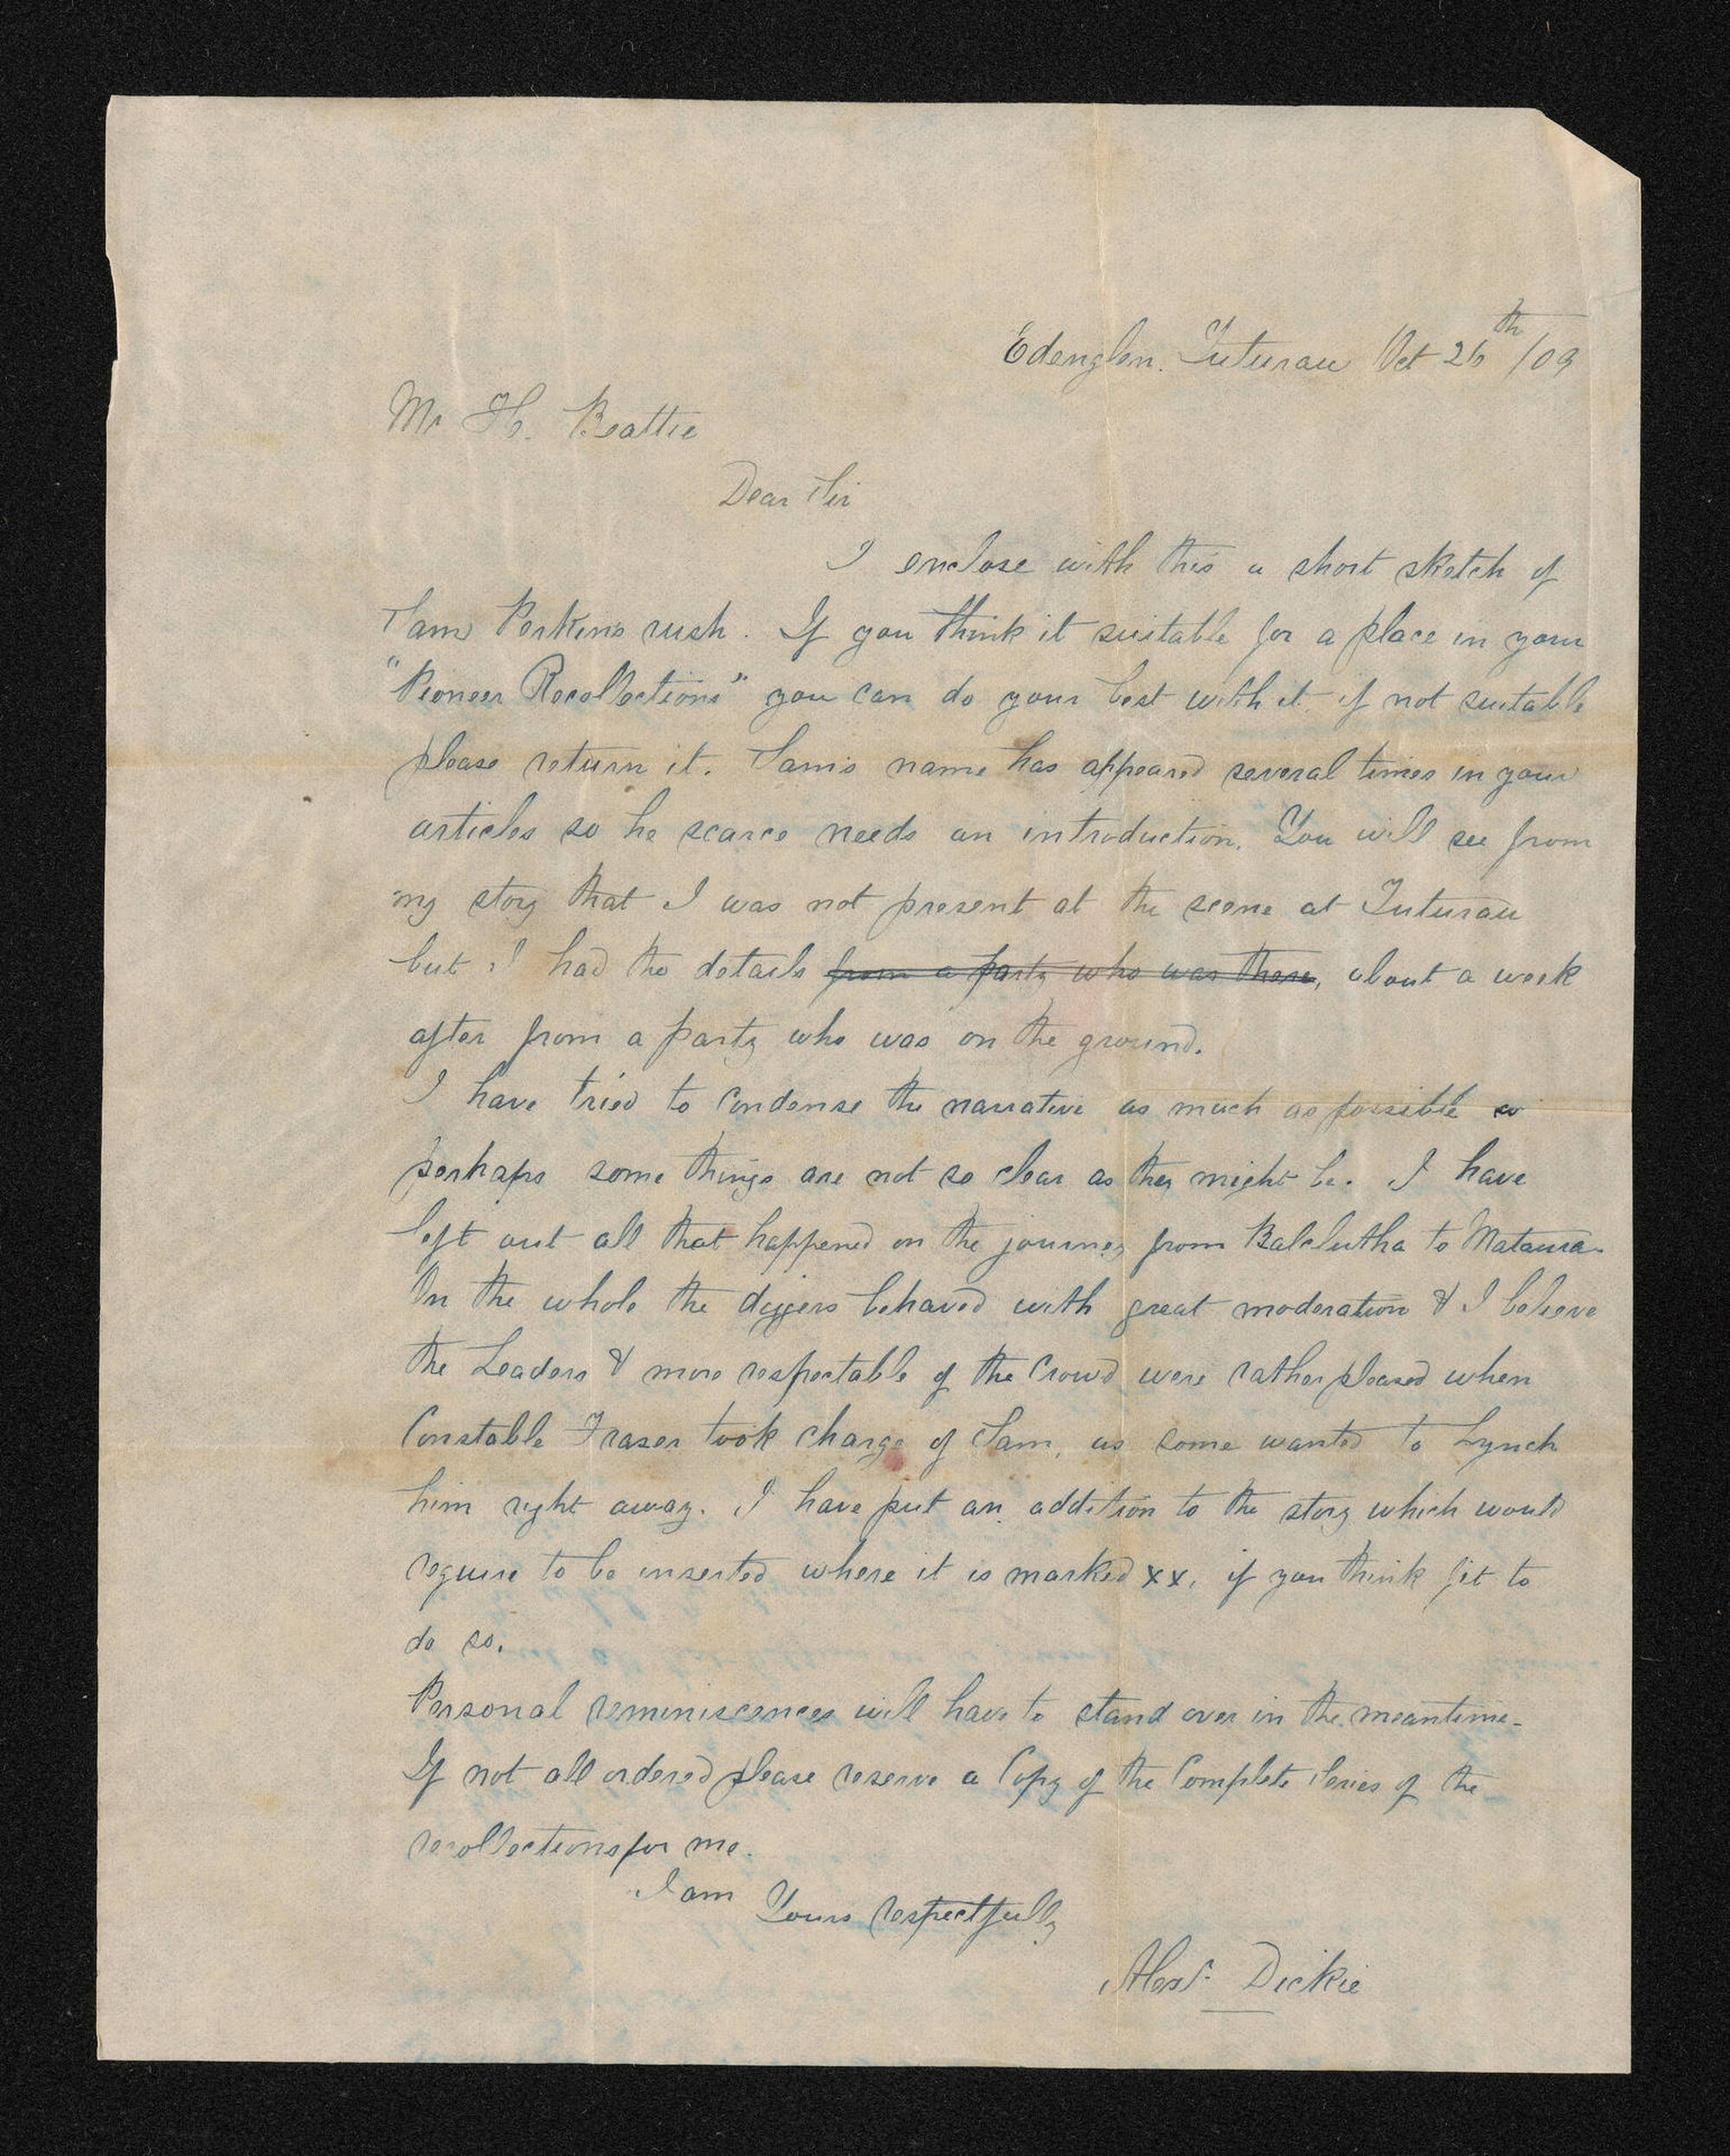 Edenglen. Tuturau Oct 26th /09
Mr H. Beattie
Dear Sir
I enclose with this a short sketch of
Sam Perkins rush. If you think it suitable for a place in your
"Pioneer Recollections" you can do your best with it, if not suitable
please return it. Sam's name has appeared several times in your
articles so he scarce needs an introduction. You will see from
my story that I was not present at the scene at Tuturau
but I had the details from a party who was there, about a week
after from a party who was on the ground.
I have tried to Condense the narrative as much as possible so
perhaps some things are not so clear as they might be. I have
left out all that happened on the journey from Balclutha to Mataura.
On the whole the diggers behaved with great moderation & I believe
the Leaders & more respectable of the Crowd were rather pleased when
Constable Fraser took charge of Sam, as some wanted to Lynch
him right away. I have put an addition to the story which would
require to be inserted where it is marked xx, if you think fit to
do so.
Personal reminiscences will have to stand over in the meantime.
If not all ordered please reserve a Copy of the Complete Series of the
recollections for me.
I am
Yours respectfully
Alexr. Dickie